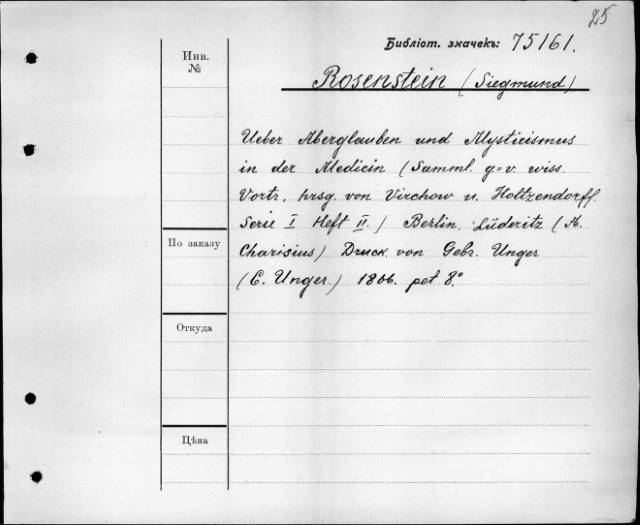 25
Библіот. значекъ: 75161.
Инв.
№
Rosenstein (Siegmund)
Ueber Aberglauben und Mysticismus
in der Medicin (Samml. g=v. wiss.
Vortr., hrsg. von Virchow u. Holtzendorff.
Serie I Heft II.) Berlin, Lüderitz (A.
Charisius) Druck von Gebr. Unger
(C. Unger.) 1866. pet 8.°
По заказу
Откуда
Цѣна